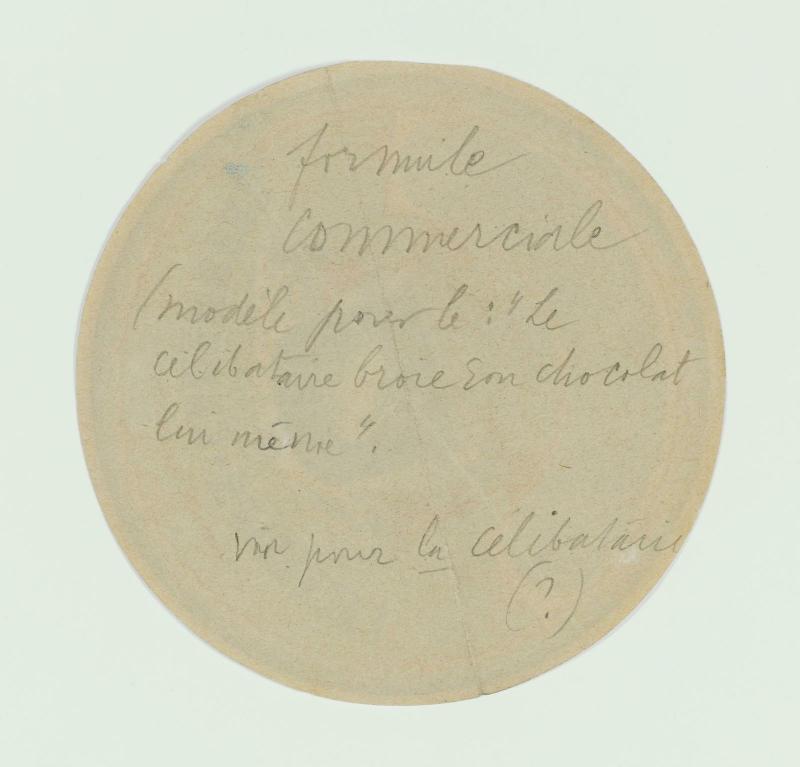 formule
commerciale
(modèle pour le : "Le
célibataire broie son chocolat
lui même".
voir pour la célibataire
(?)